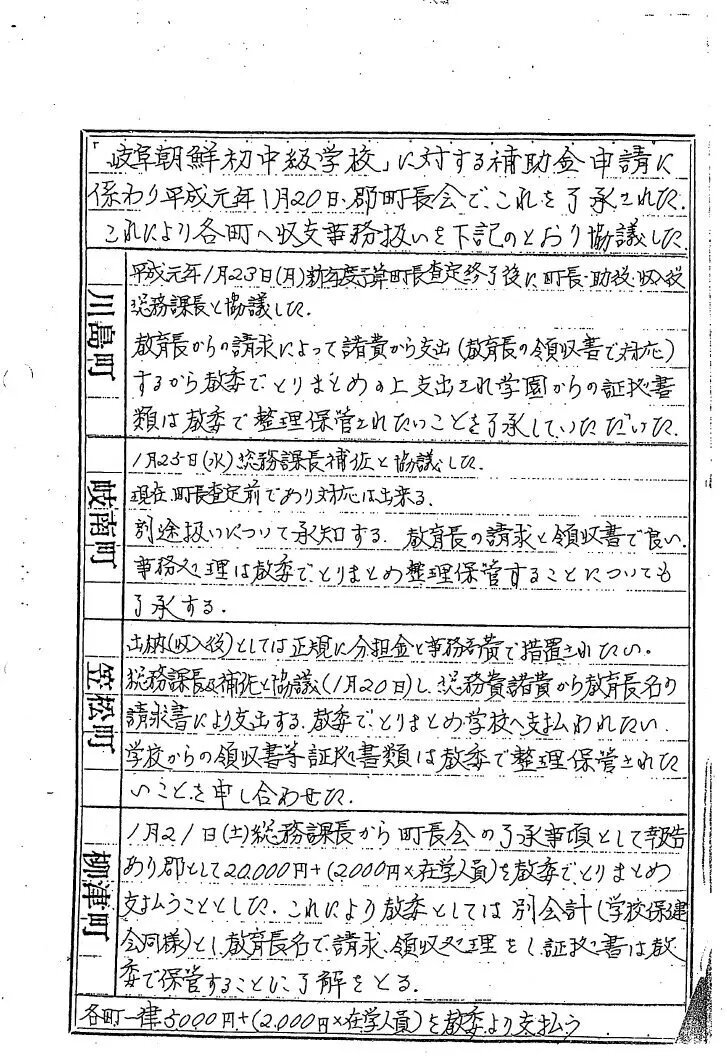 「岐阜朝鮮初中級学校」に対する補助金申請に
係わり平成元年1月20日、郡町長会で、これを了承された。
これにより各町へ収支事務扱いを下記のとおり協議した。
川島町
平成元年1月23日(月)新年度予算町長査定終了後に町長・助役・収入役
総務課長と協議した。
教育長からの請求によって諸費から支出(教育長の領収書で対応)
するから教委でとりまとめの上支出され学園からの証拠書
類は教委で整理保管されたいことを了承していただいた。
岐南町
1月25日(水)総務課長補佐と協議した。
現在町長査定前であり対応は出来る。
別途扱いについて承知する。教育長の請求と領収書で良い。
事務処理は教委でとりまとめ整理保管することについても
了承する。
笠松町
出納(収入役)としては正規に分担金と事務局費で措置されたい。
総務課長及補佐と協議(1月20日)し、総務費諸費から教育長名の
請求書により支出する。教委でとりまとめ学校へ支払われたい。
学校からの領収書等証拠書類は教委で整理保管された
いことを申し合わせた。
柳津町
1月21日(土)総務課長から町長会の了承事項として報告
あり郡として20.000円+(2000円×在学人員)を教委でとりまとめ
支払うこととした。これにより教委としては別会計(学校保健
会同様)とし、教育長名で請求、領収処理をし証拠書は教
委で保管することに了解をとる。
各町一律5000円+(2,000円×在学人員)を教委より支払う